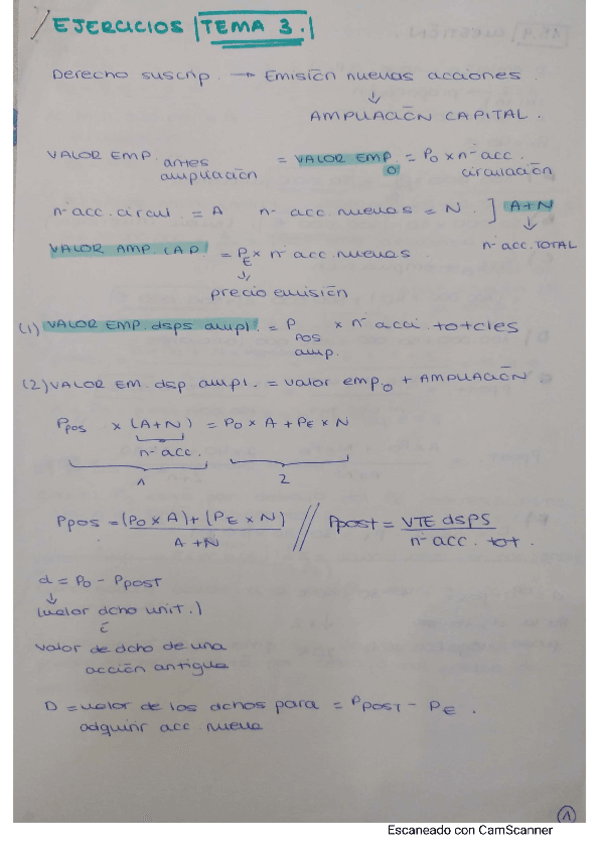 EJERCICIOS TEMA 3.
Derecho suscrip. → Emisión nuevas acciones.
↓
AMPLIACIÓN CAPITAL.
VALOR EMP. antes ampliación = VALOR EMP 0 = P0 x nº acc. circulación
nº acc. circul. = A nº acc. nuevas = N. ] A+N
↓
nº acc. TOTAL
VALOR AMP. CAP. = PE x nº acc. nuevas.
↓
precio emisión
(1) VALOR EMP. dsps ampl. = P pos amp. x nº acci. totales
(2) VALOR EM. dsp ampl. = valor emp0 + AMPLIACIÓN
Ppos x (A+N) = P0 x A + PE x N
nº acc.
1 2
Ppos = (P0 x A) + (PE x N) / A+N // Ppost = VTE dsps / nº acc. tot.
d = P0 - PPOST
↓
(valor dcho unit.)
valor de dcho de una
acción antigua
D = valor de los dchos para = PPOST - PE.
adquirir acc. nueva
1
Escaneado con CamScanner